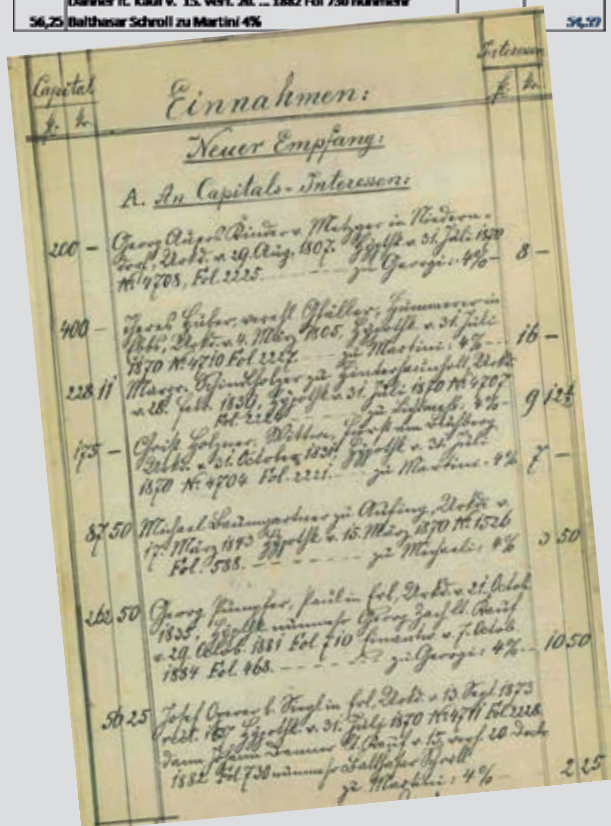 Danner lt. Kauf v. 15. verf. 20. ... 1882 Fol 730 nunmehr
56,25 Balthasar Schroll zu Martini 4% 54,59
Capital Interessen
fl. kr. Einnahmen: fl. kr.
Neuer Empfang:
A. An Capitals-Interessen:
200 – Georg Auers Kinder v. Metzger in Niedern-
dorf, Urkd. v. 29. Aug. 1807. Hypothk v. 31. Juli 1870
Nr. 4708, Fol. 2225. zu Georgi: 4% – 8 –
400 – Theres Huber, verehl. Gfäller, in
Ebbs, Urkd. v. 4. März 1805, Hypothk v. 31. Juli
1870 Nr. 4710 Fol. 2227. zu Martini: 4% – 16 –
228 11 Margr. Schindlholzer zu Urkd.
v. 28. Febr. 1839, Hypothk v. 31. Juli 1870 Nr. 4707
Fol. zu Lichtmess: 4% – 9 12½
175 – Christ. Holzner,
Urkd. v. 31. October 1831 Hypothk v. 31. Juli
1870 Nr. 4704 Fol. 2221. zu Martini: 4% 7 –
87 50 Michael Baumgartner zu Urkd. v.
17. März 1843 Hypothk v. 15. März 1870 Nr. 1526
Fol. 588. zu Michaeli: 4% 3 50
262 50 Georg Paul in Erl, Urkd. v. 21. Octob.
1835, Hypothk nunmehr Georg Zach lt. Kauf
v. 29. Octob. 1881 Fol 710 v. 7. Octob.
1884 Fol. 468. zu Georgi: 4% – 10 50
56 25 Josef in Erl, Urkd. v. 13. Sept 1873
Hypothk v. 31. Juli 1870 Nr. 4711 Fol. 2228
dann Johann Danner lt. Kauf v. 15. verf 20.
1882 Fol 730 nunmehr Balthasar Schroll
zu Martini: 4% – 2 25